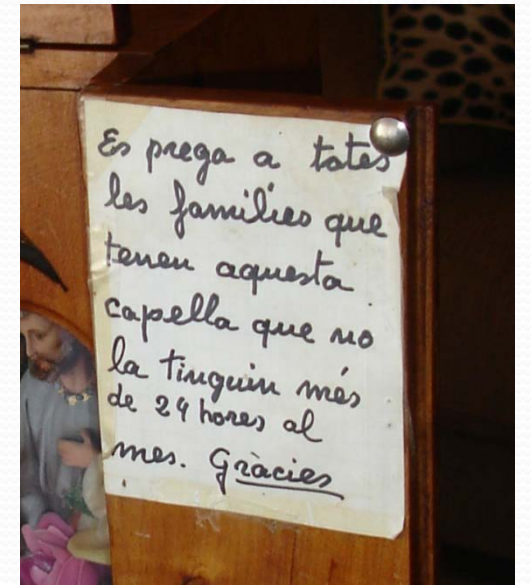 Es prega a totes
les famílies que
tenen aquesta
capella que no
la tinguin més
de 24 hores al
mes. Gràcies